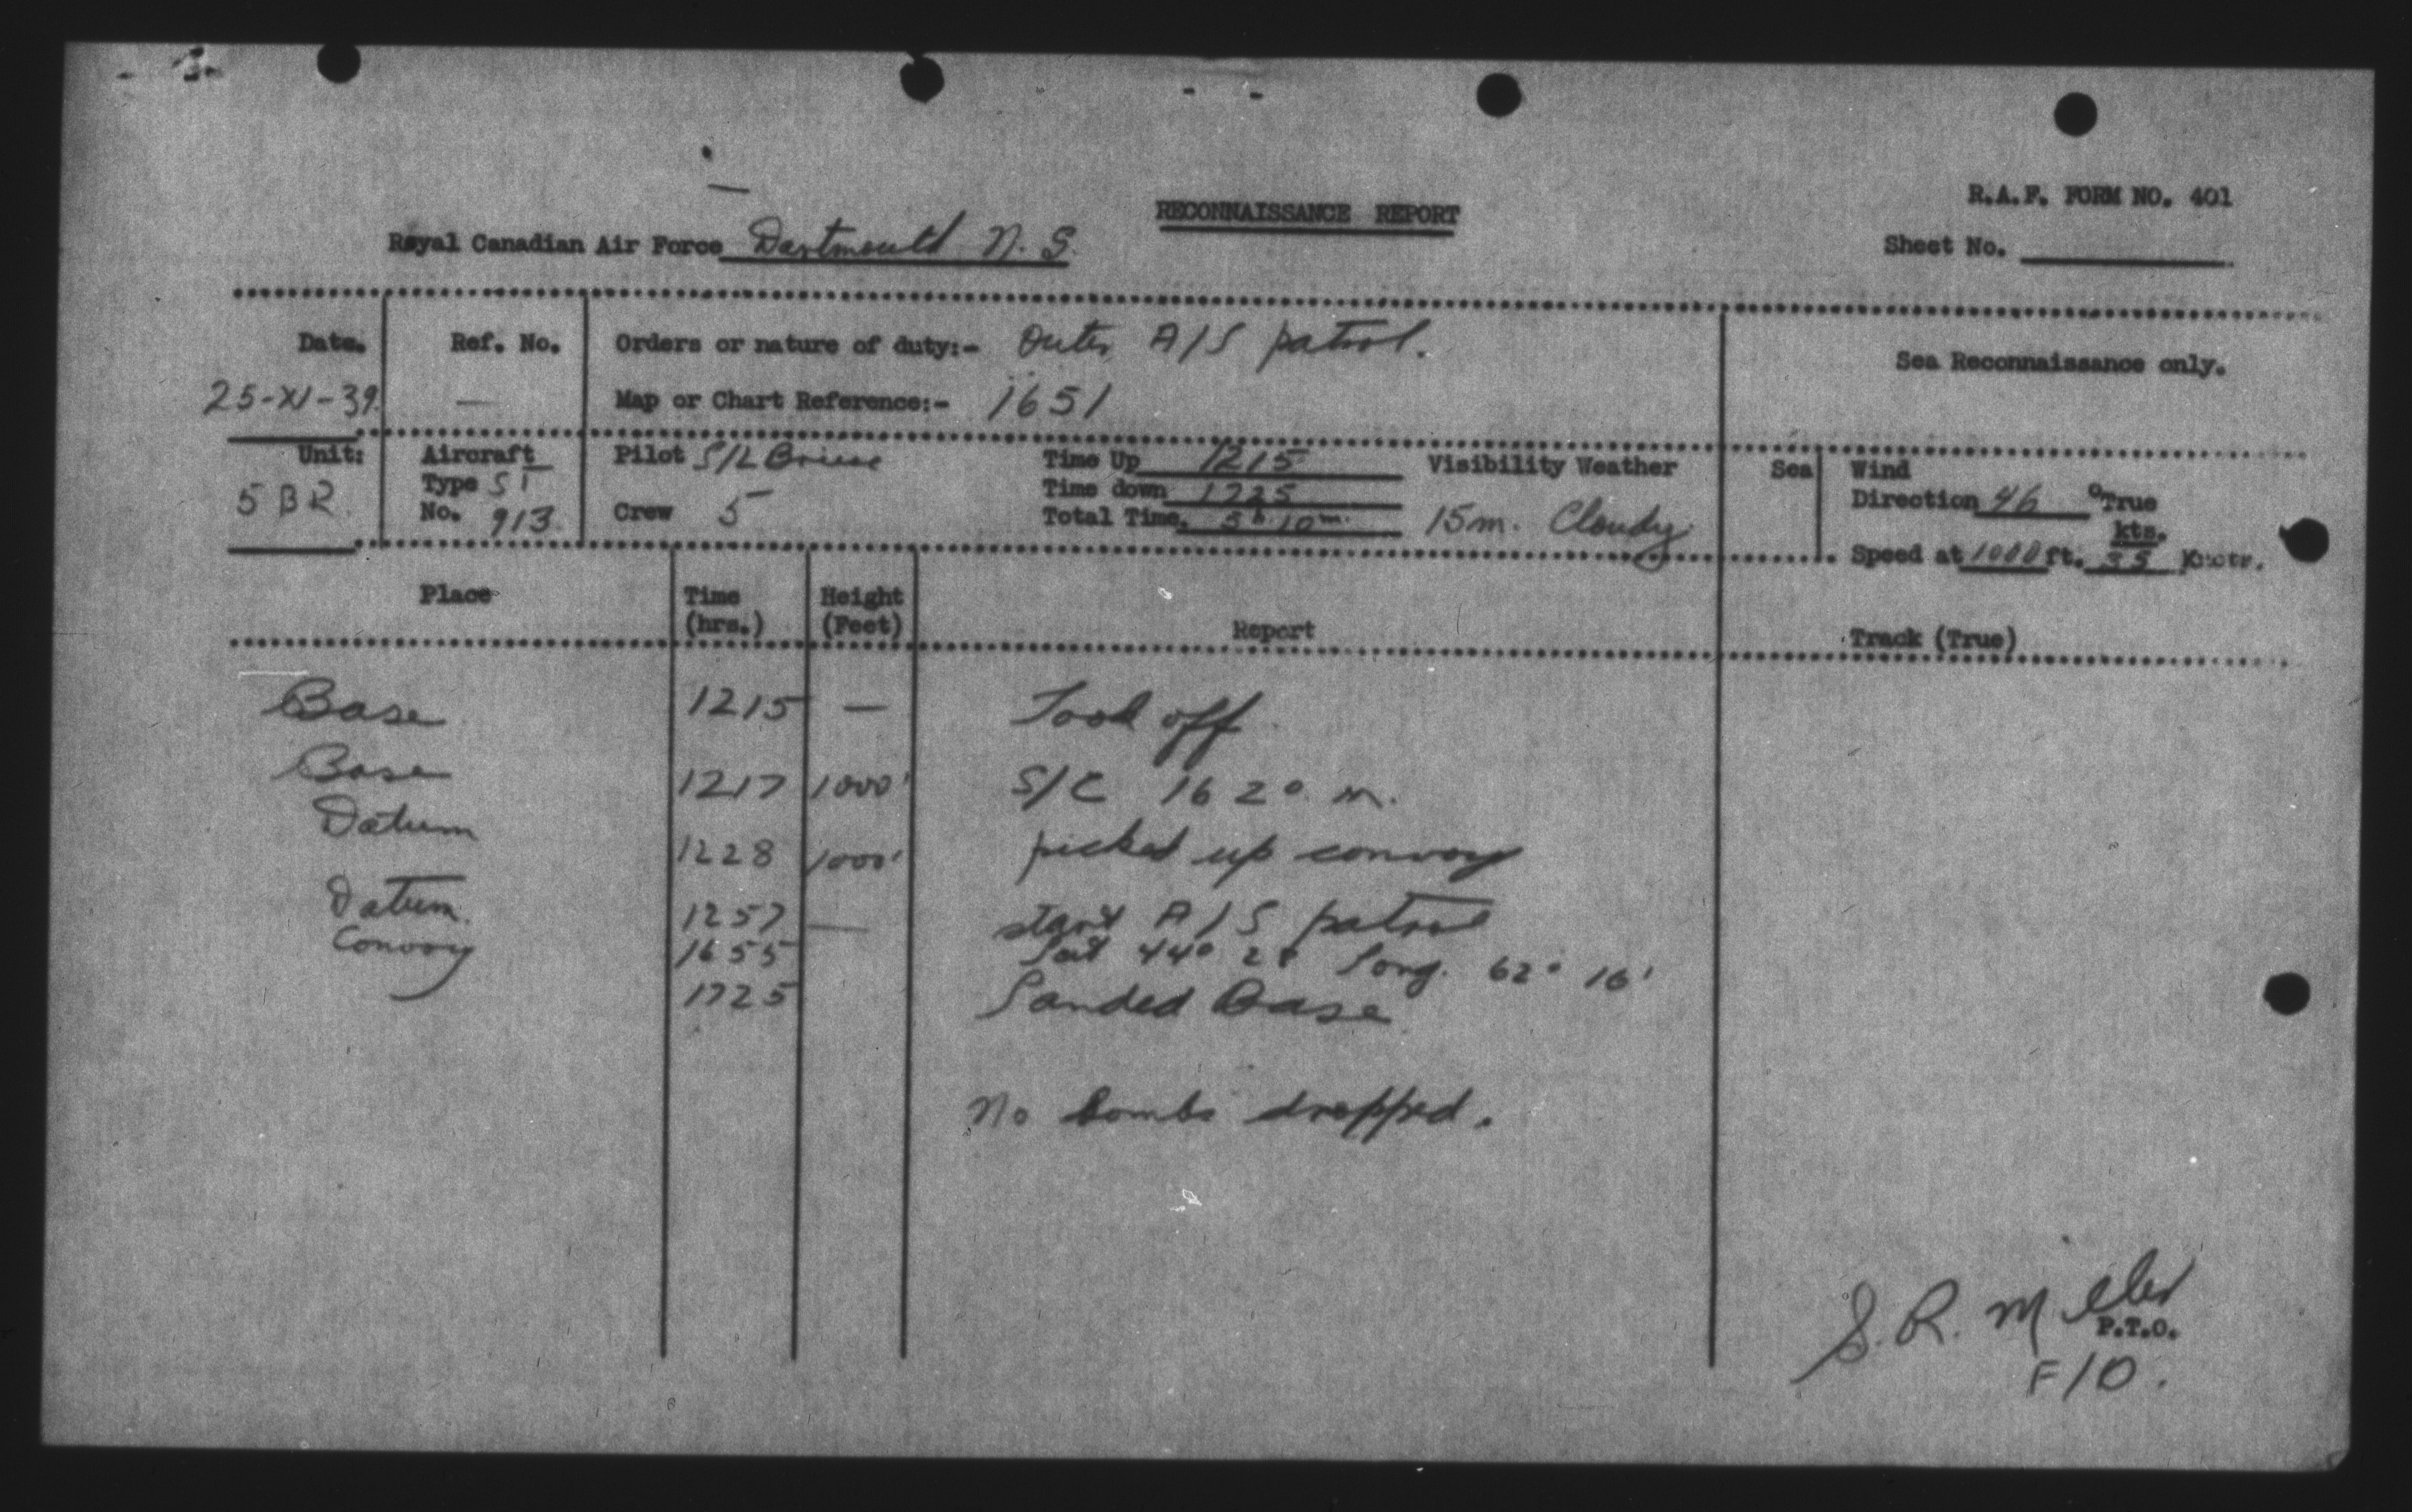 RECONNAISSANCE REPORT
R.A.F. FORM NO. 401
Royal Canadian Air Force Dartmouth N. S.
Sheet No.
Date. Ref. No. Orders or nature of duty:- Outer A/S patrol.
Sea Reconnaissance only.
25-XI-39. — Map or Chart Reference:- 1651
Unit: Aircraft Pilot S/L Time Up 1215 Visibility Weather Sea Wind
Type ST Time down 1725 Direction 46 °True
5 BR. No. 913. Crew 5 Total Time. 5h. 10m. 15m. Cloudy.
kts.
Speed at 1000 ft. 35
Place Time Height Report Track (True)
(hrs.) (Feet)
Base 1215 — Took off
Base 1217 1000' S/C 162° m.
Datum 1228 1000' picked up convoy
Datum. 1257 — start A/S patrol
Convoy 1655 Lat 44° 28 Long. 62° 16'
1725 Landed Base
No bombs dropped.
S. R. Miller
P.T.O.
F/O.